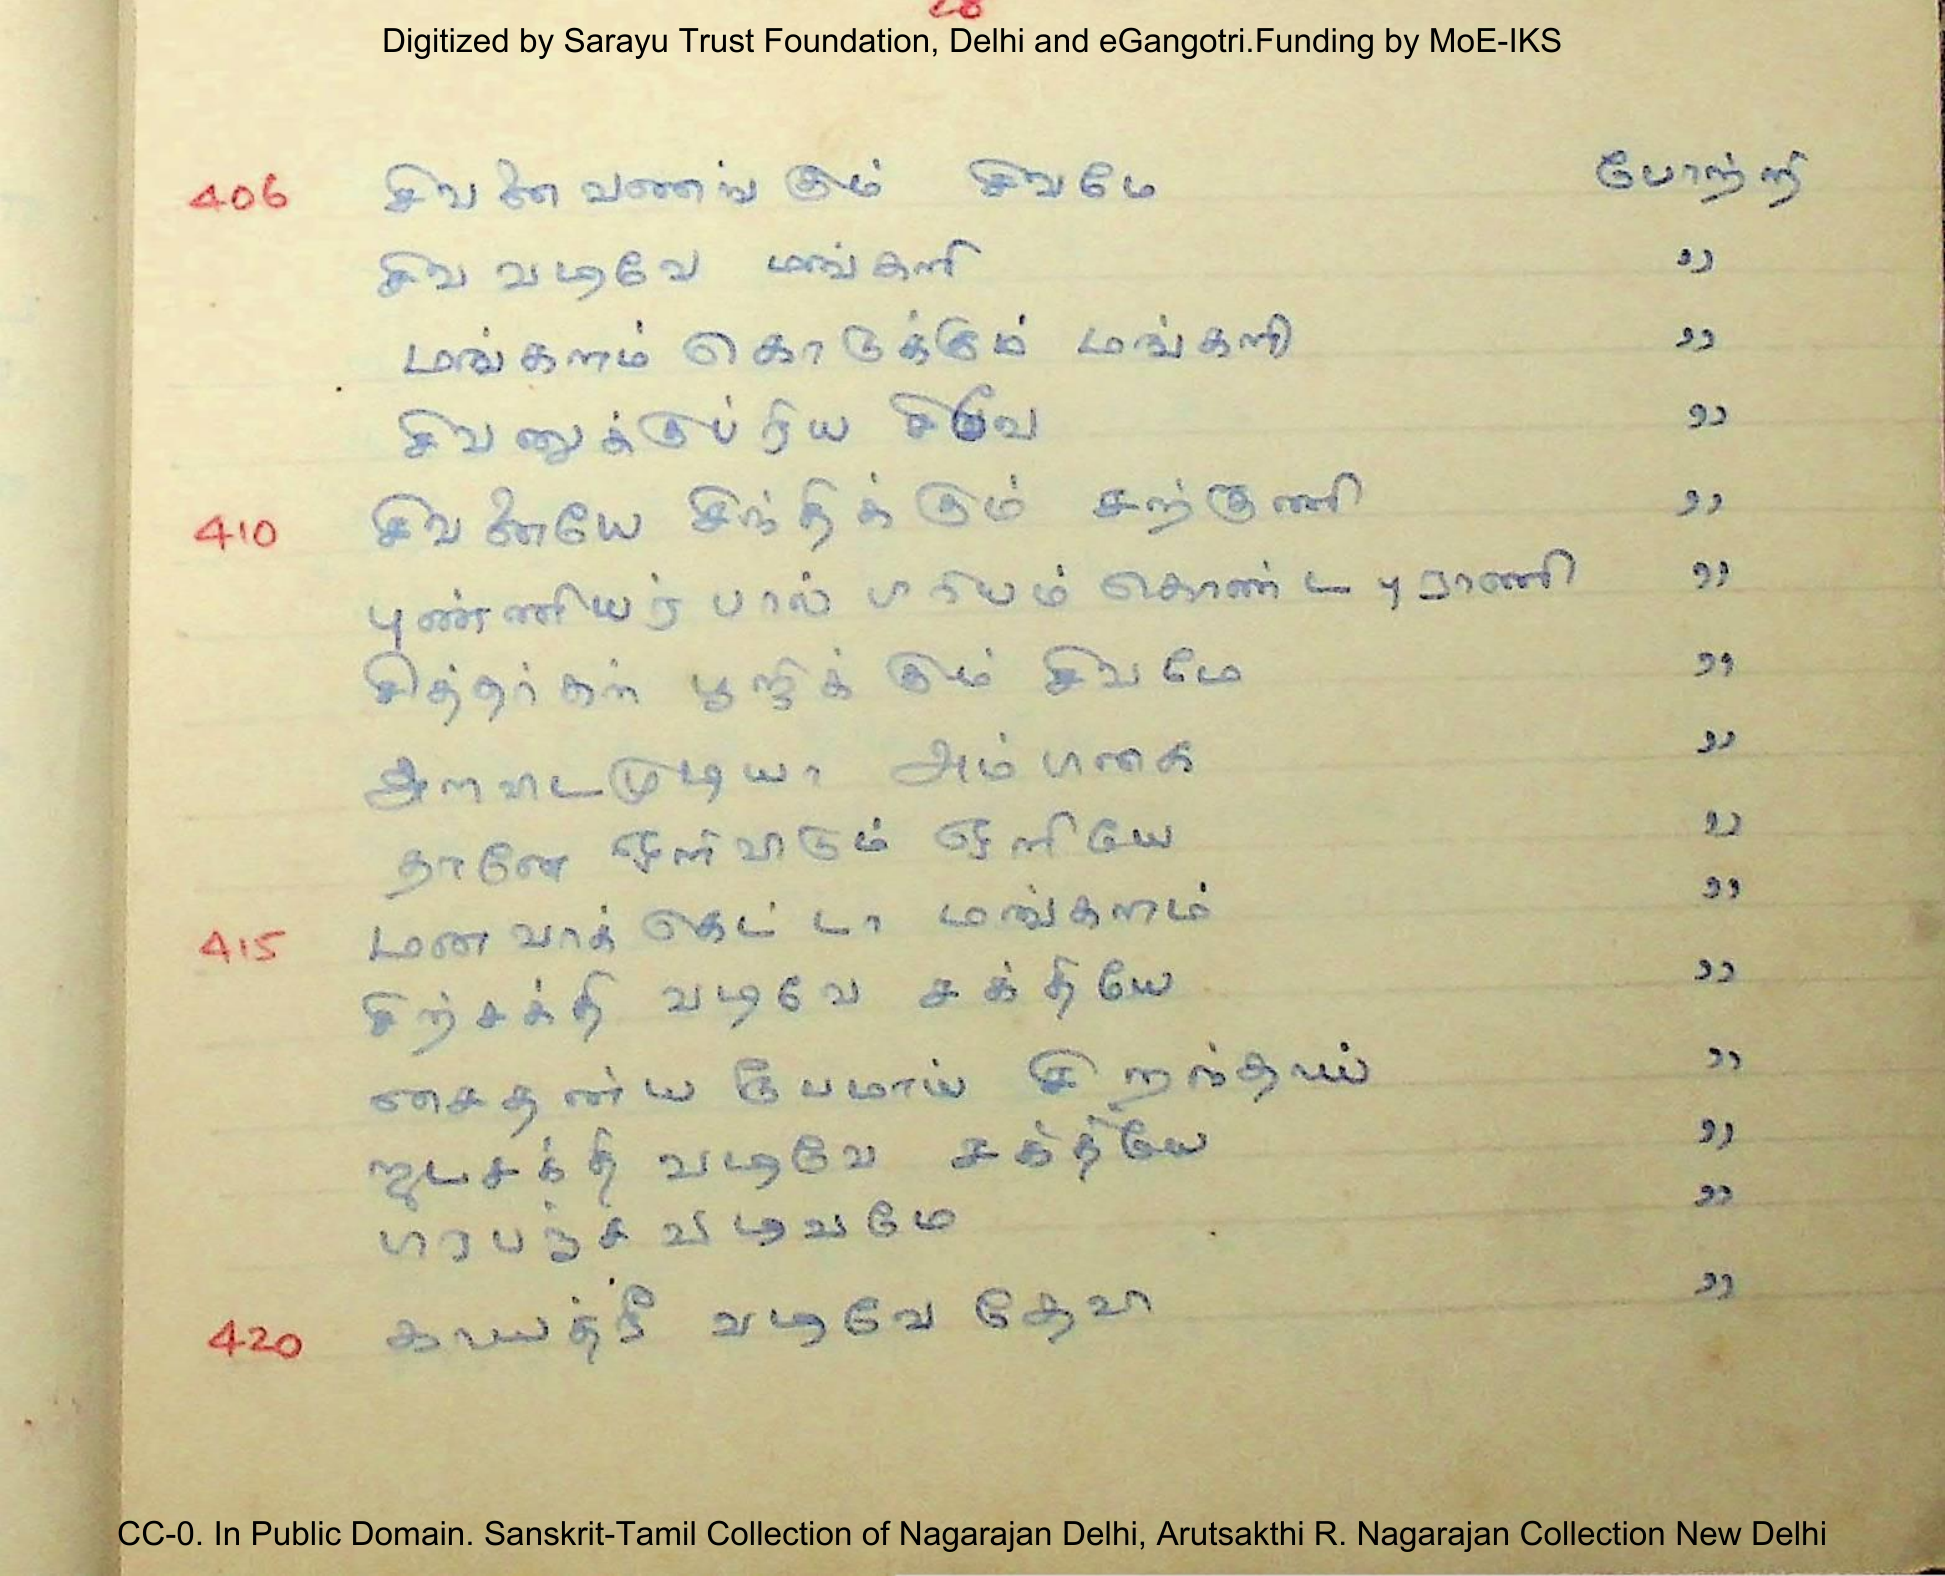 28
Digitized by Sarayu Trust Foundation, Delhi and eGangotri.Funding by MoE-IKS
406 சிவனைவணங்கும் சிவமே போற்றி
சிவ வடிவே மங்களி ,,
மங்களம் கொடுக்கும் மங்களி ,,
சிவனுக்குப்ரிய சிவே ,,
410 சிவனையே சிந்திக்கும் சற்குணி ,,
புண்ணியர்பால் ப்ரியம் கொண்ட புராணி ,,
சித்தர்கள் பூஜிக்கும் சிவமே ,,
அளவிடமுடியா அம்பிகை ,,
தானே ஒளிவிடும் ஒளியே ,,
415 மனவாக்கெட்டா மங்களம் ,,
சிற்சக்தி வடிவே சக்தியே ,,
சைதன்ய ரூபமாய் சிறந்தாய் ,,
ஜடசக்தி வடிவே சக்தியே ,,
பிரபஞ்ச வடிவமே ,,
420 காயத்ரீ வடிவே தேவி ,,
CC-0. In Public Domain. Sanskrit-Tamil Collection of Nagarajan Delhi, Arutsakthi R. Nagarajan Collection New Delhi